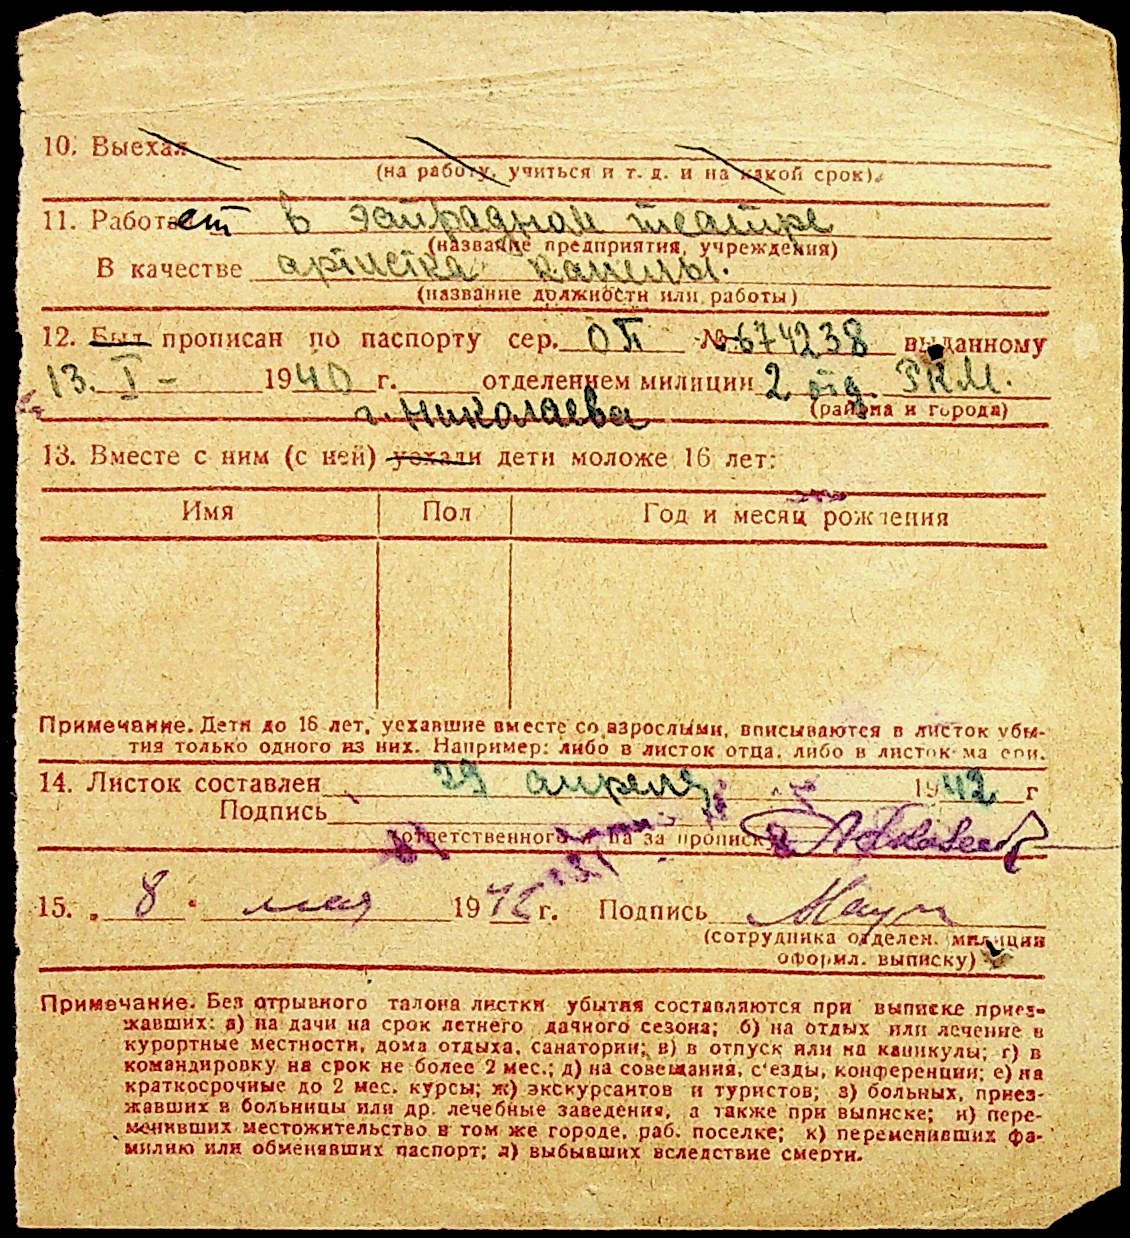 10. Выехал
(на работу, учиться и т. д. и на какой срок).
11. Работает в эстрадном театре
(название предприятия, учреждения)
В качестве артистка капелы.
(название должности или работы)
12. Был прописан по паспорту сер. ОП № 674238 выданному
13. I – 1940 г. отделением милиции 2 отд. РКМ.
(района и города)
г. Николаева
13. Вместе с ним (с ней) уехали дети моложе 16 лет:
Имя Пол Год и месяц рождения
Примечание. Дети до 16 лет, уехавшие вместе со взрослыми, вписываются в листок убы-
тия только одного из них. Например: либо в листок отца, либо в листок матери.
14. Листок составлен 29 апреля 1942 г
Подпись
(ответственного лица за прописку
15. „ 8 " мая 1942 г. Подпись
(сотрудника отделен. милиции
оформл. выписку)
Примечание. Без отрывного талона листки убытия составляются при выписке приез-
жавших: а) на дачи на срок летнего дачного сезона; б) на отдых или лечение в
курортные местности, дома отдыха, санатории; в) в отпуск или на каникулы; г) в
командировку на срок не более 2 мес.; д) на совещания, с'езды, конференции; е) на
краткосрочные до 2 мес. курсы; ж) экскурсантов и туристов; з) больных, приез-
жавших в больницы или др. лечебные заведения, а также при выписке; и) пере-
менивших местожительство в том же городе, раб. поселке; к) переменивших фа-
милию или обменявших паспорт; л) выбывших вследствие смерти.